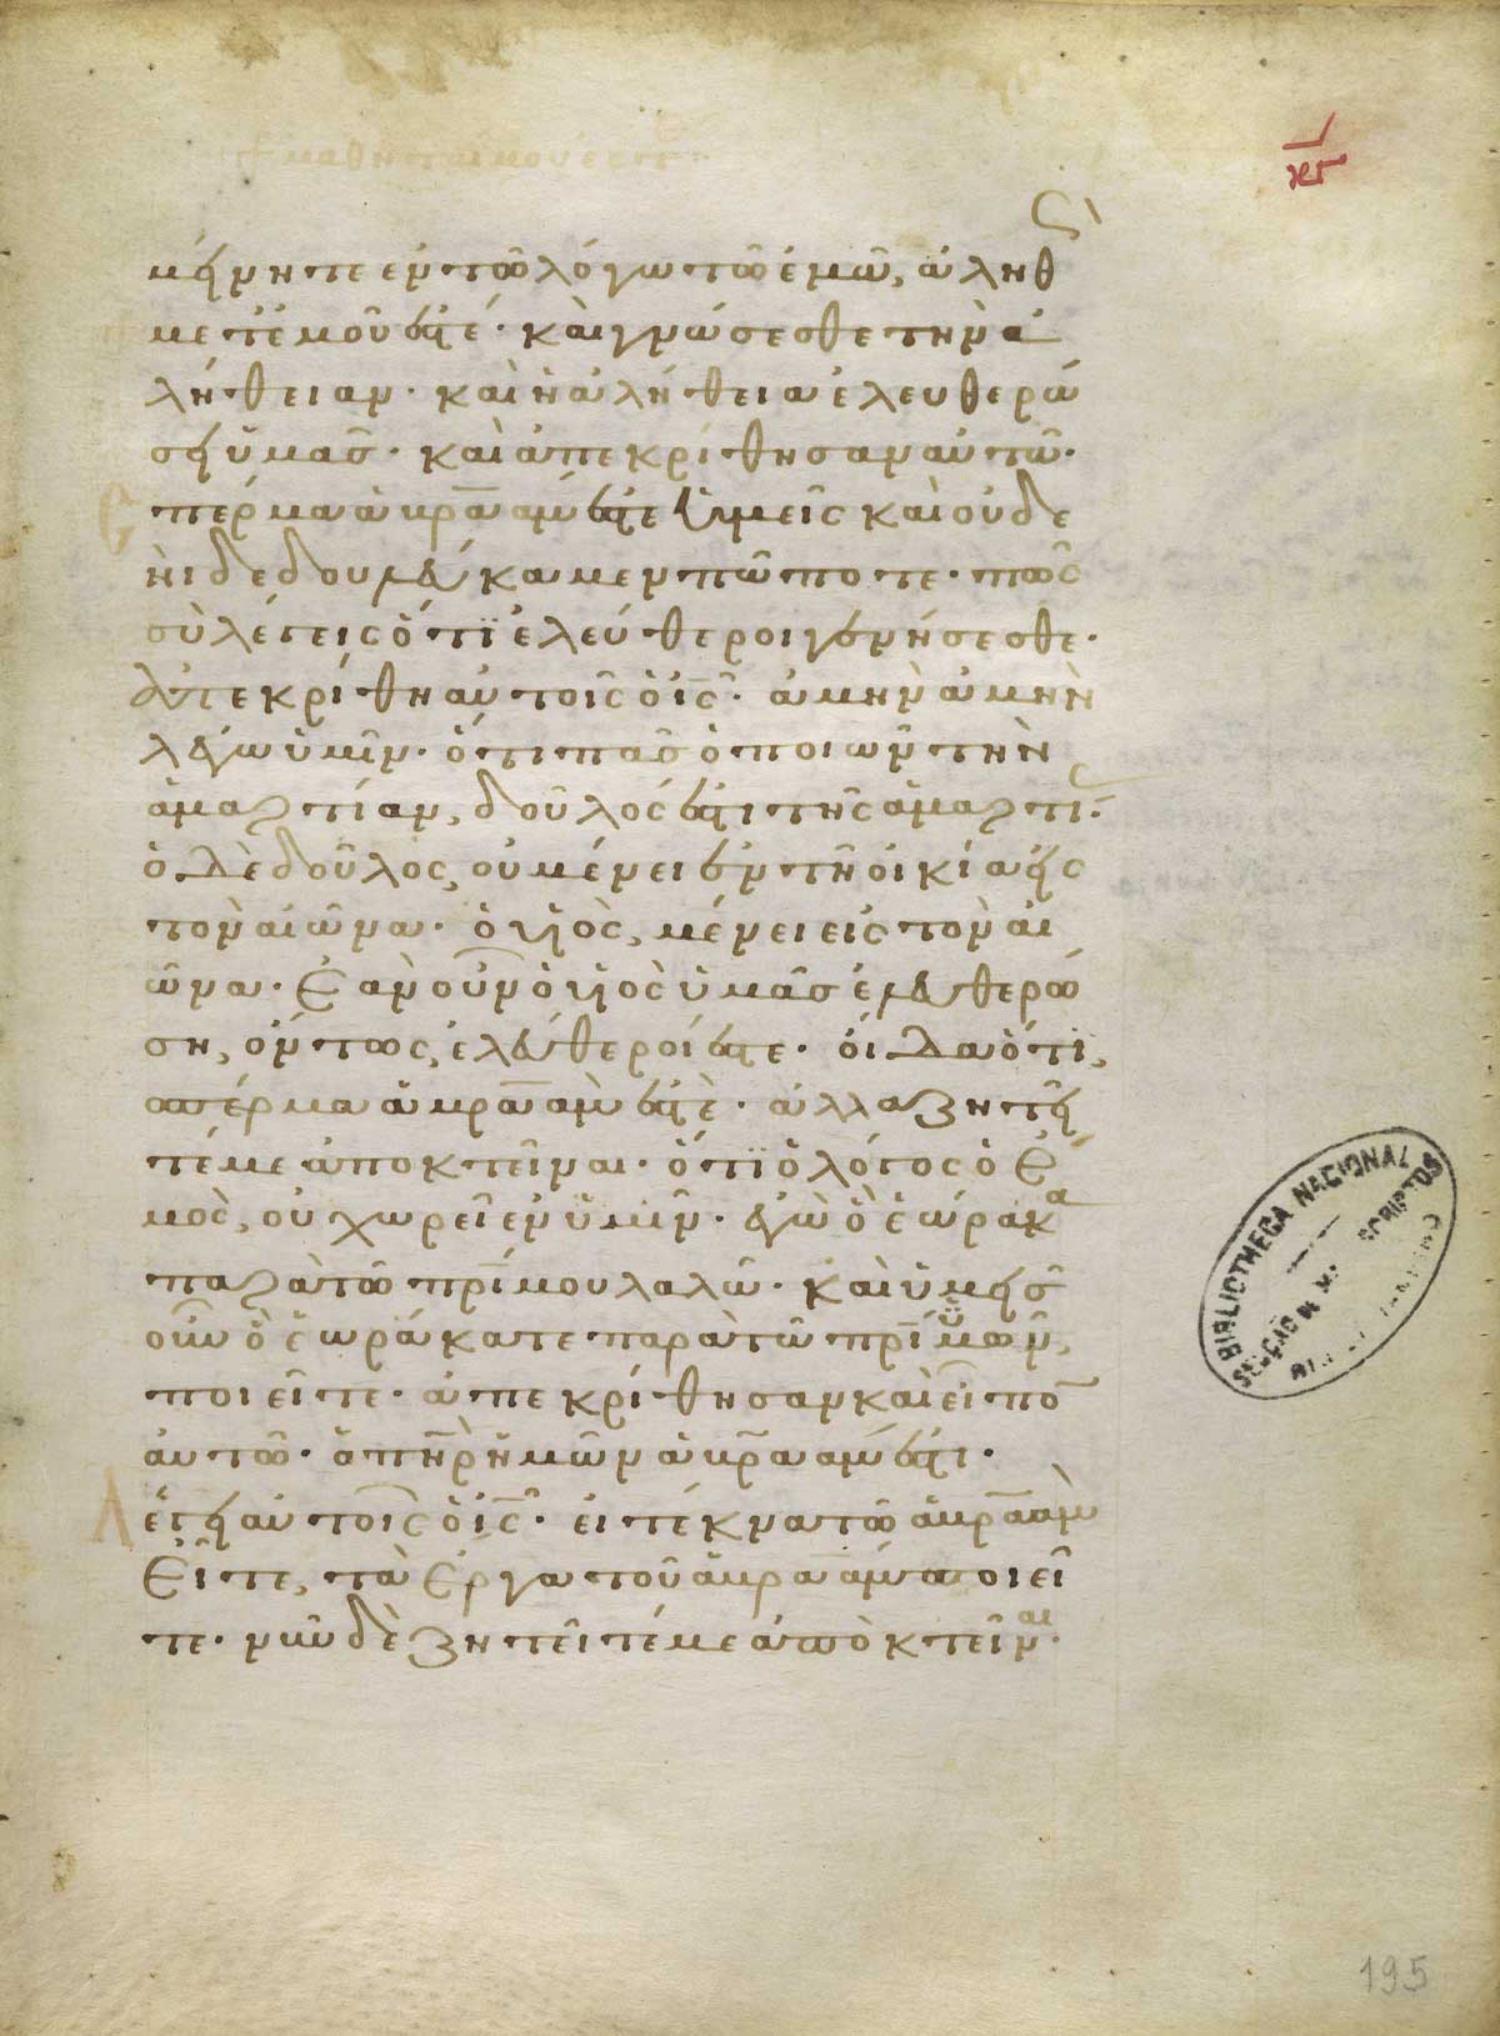 μαθηταί μου ἐστ
μείνητε ἐν τῶ λόγω τῶ ἐμῶ, ἀληθ
μετέμοῦ ἐστέ· καὶ γνώσεσθε τὴν ἀ
λήθειαν· καὶ ἡ ἀλήθεια ἐλευθερώ
σει ὑμᾶσ· καὶ ἀπεκρίθησαν αὐτῶ·
Σπέρμα ἀβραάμ ἐστε ἡμεῖς καὶ οὐδε
νὶ δεδουλεύκαμεν πῶποτε· πῶς
σὺ λέγεις ὅτϊ ἐλεύθεροι γενήσεσθε·
ἀπεκρίθη αὐτοῖς ὁ ις· ἀμὴν ἀμὴν
λέγω ὑμῖν· ὅτι πᾶσ ὁ ποιῶν τὴν
ἁμαρτίαν, δοῦλός ἐστι τῆς ἁμαρτί·
ὁ δὲ δοῦλος, οὐ μένει ἐν τῆ οἰκία εἰς
τὸν αἰῶνα· ὁ υἱὸς, μένει εἰς τὸν αἰ
ῶνα· Ἐὰν οὖν ὁ υἱὸς ὑμᾶσ ἐλευθερώ
ση, ὄντως, ἐλεύθεροί ἐστε· οἶδα ὅτι,
σπέρμα ἀβραὰμ ἐστὲ· ἀλλα ζητεῖ
τέ με ἀποκτεῖναι· ὅτϊ ὁ λόγος ὁ ἐ
μὸς, οὐ χωρεῖ ἐν ὑμῖν· ἐγὼ ὃ ἑώρακα
παρὰ τῶ πρι μου λαλῶ· καὶ ὑμεῖσ
οὖν ὃ ἑωράκατε παρὰ τῶ πρι ὑμῶν,
ποιεῖτε· ἀπεκρίθησαν καὶ εἶπο
αὐτῶ· ὁ πηρ ἡμῶν ἀβραάμ ἐστι·
Λέγει αὐτοῖς ὁ ις· εἰ τέκνα τῶ ἀβραὰμ
Εἶτε, τὰ ἔργα τοῦ ἀβραάμ ἐποιεῖ
τε· νῦν δὲ ζητεῖτέ με ἀπὸκτεῖναι·
BIBLIOTHECA NACIONAL
SECÇÃO DE MANUSCRIPTOS
195